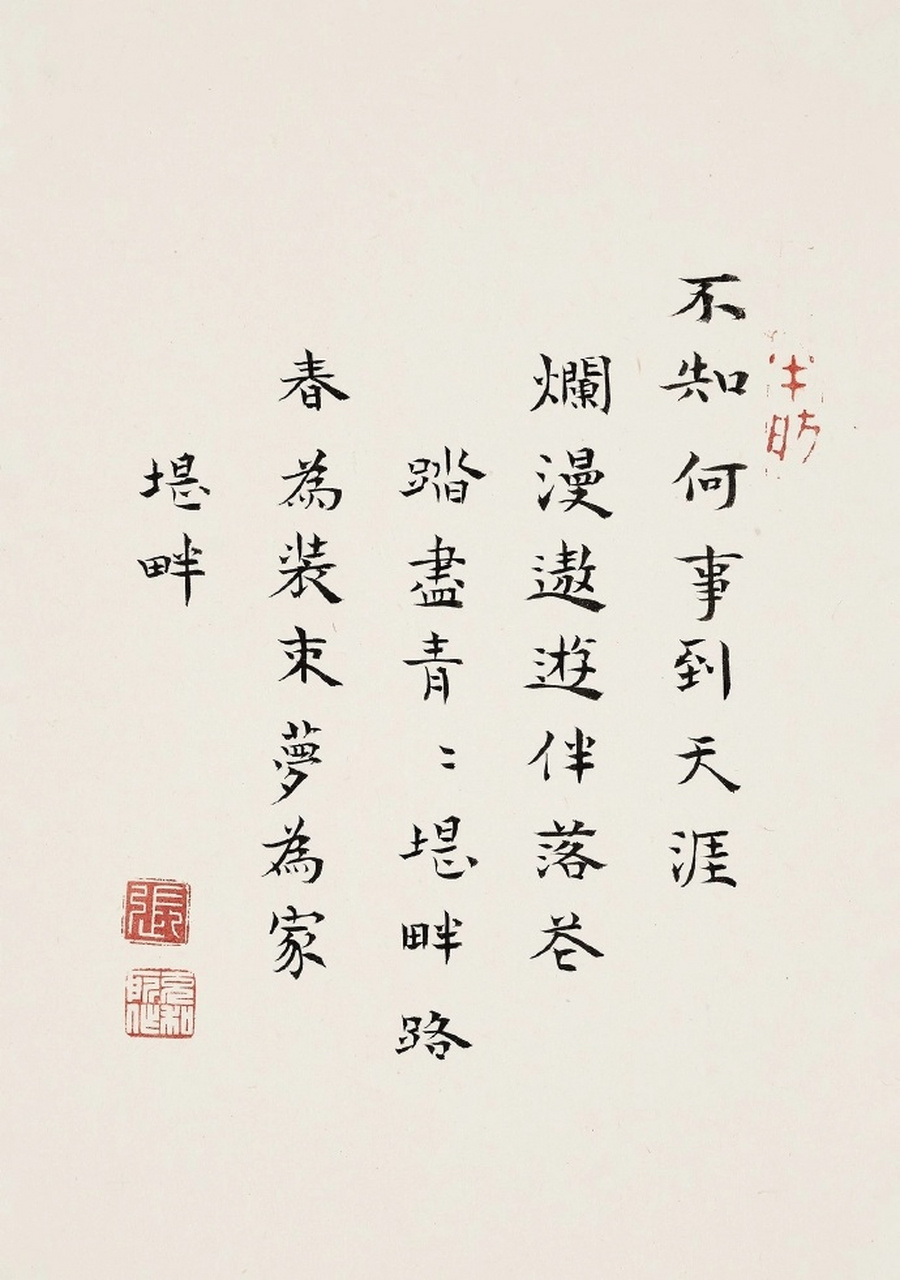 不知何事到天涯
爛漫遨遊伴落花
踏盡青〻堤畔路
春為裝束夢為家
堤畔
張
元和所作